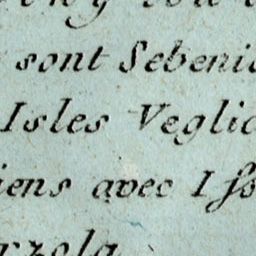 sont Sebeni
Isles Veglia
iens avec Isso
rzola